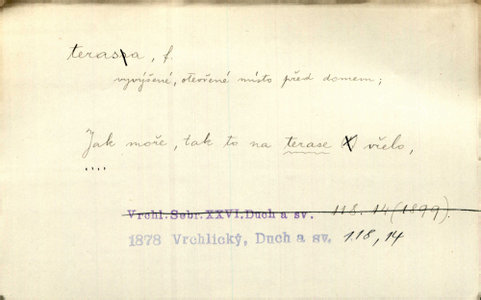 terasa, f.
vyvýšené, otevřené místo před domem;
Jak moře, tak to na terase vřelo,
....
Vrchl. Sebr. XXVI. Duch a sv. 118. 14 (1899).
1878 Vrchlický, Duch a sv. 118, 14